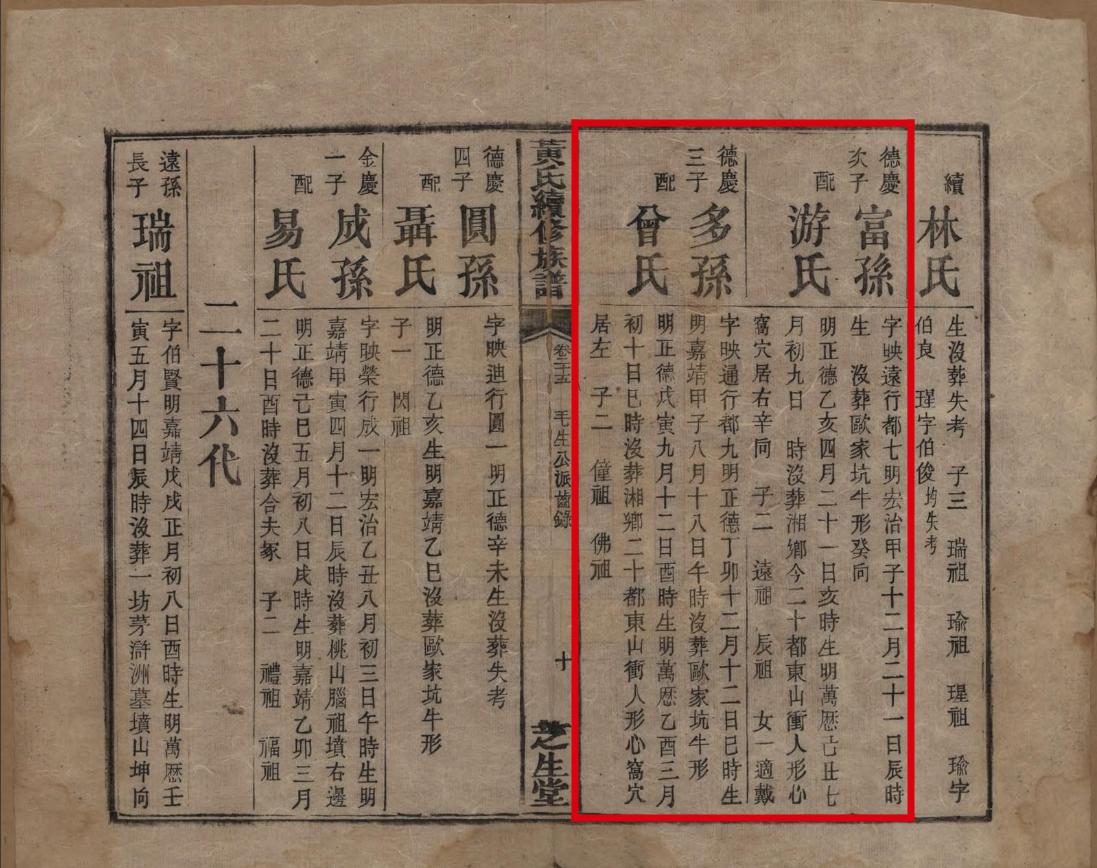 續
林氏
生沒葬失考 子三 瑞祖 瑜祖 瑆祖 瑜字
伯良 瑆字伯俊均失考
德慶
次子
富孫
字映遠行都七明宏治甲子十二月二十一日辰時
生 沒葬歐家坑牛形癸向
配
游氏
明正德乙亥四月二十一日亥時生明萬歷己丑七
月初九日 時沒葬湘鄉今二十都東山衝人形心
窩穴居右辛向 子二 遠祖 辰祖 女一適戴
德慶
三子
多孫
字映通行都九明正德丁卯十二月十二日巳時生
明嘉靖甲子八月十八日午時沒葬歐家坑牛形
配
曾氏
明正德戊寅九月十二日酉時生明萬歷乙酉三月
初十日巳時沒葬湘鄉二十都東山衝人形心窩穴
居左 子二 僮祖 佛祖
黃氏續修族譜
卷二十五
毛生公派齒錄
十
芝生堂
德慶
四子
圓孫
字映迪行圓一 明正德辛未生沒葬失考
配
聶氏
明正德乙亥生明嘉靖乙巳沒葬歐家坑牛形
子一 閃祖
金慶
一子
成孫
字映榮行成一明宏治乙丑八月初三日午時生明
嘉靖甲寅四月十二日辰時沒葬桃山腦祖墳右邊
配
易氏
明正德己巳五月初八日戌時生明嘉靖乙卯三月
二十日酉時沒葬合夫冢 子二 禮祖 福祖
二十六代
遠孫
長子
瑞祖
字伯賢明嘉靖戊戌正月初八日酉時生明萬歷壬
寅五月十四日辰時沒葬一坊茅滸洲墓墳山坤向